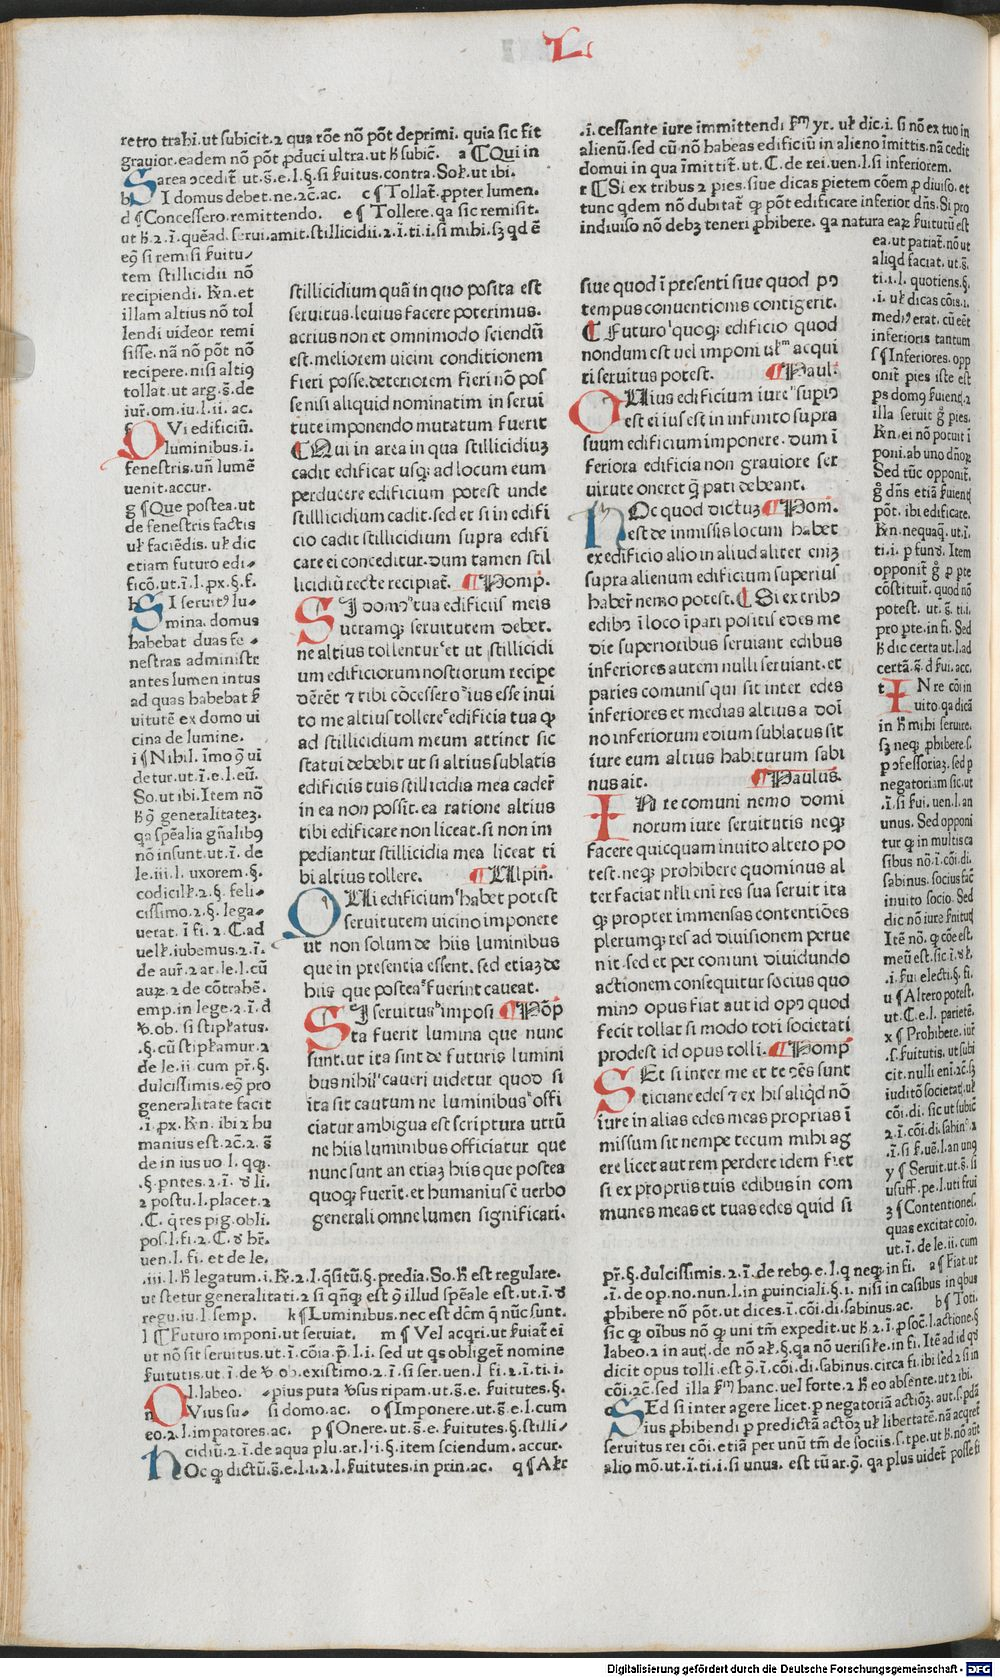 L
retro trahi. ut subicit. ⁊ qua rõe nõ põt deprimi. quia sic fit
grauior. eadem nõ põt ꝓduci ultra. ut ħ subic̃. a ¶ Qui in
area ɔcedit̃ ut. s̃. e. l. §. si ẜuitus. contra. Sol. ut ibi.
b SI domus debet. ne. ⁊c̃. ac. c ¶ Tollat̃. ꝓpter lumen.
d ¶ Concessero. remittendo. e ¶ Tollere. qa sic remisit.
eꝯ si remisi ẜuitu/
tem stillicidii nõ
recipiendi. Kñ. et
illam altius nõ tol
lendi uideor remi
sisse. nã nõ põt nõ
recipere. nisi altiꝯ
tollat. ut arg. s̃. de
iur̃. om. iu. l. ii. ac.
f QVi edificiũ.
luminibus. i.
fenestris. uñ lumẽ
uenit. accur.
g ¶ Que postea. ut
de fenestris factis
ul̃ faciẽdis. ul̃ dic
etiam futuro edi-
ficõ. ut. ĩ. l. ꝓx. §. f.
h SI seruitꝯ lu-
mina. domus
habebat duas fe-
nestras administr
antes lumen intus
ad quas habebat ẜ
uitutẽ ex domo ui
cina de lumine.
i ¶ Nihil. ĩmo ꝯ ui
detur. ut. ĩ. e. l. eũ.
So. ut ibi. Item nõ
ħ ꝯ generalitateʒ.
qa spẽalia gñalibꝯ
nõ insunt. ut. ĩ. de
le. iii. l. uxorem. §.
codicill̃. ⁊. §. feli-
cissimo. ⁊. §. lega-
uerat. ĩ fi. ⁊. C. ad
uell̃. iubemus. ⁊. ĩ.
de aur̃. ⁊ ar. le. l. cũ
auꝝ. ⁊ de cõtrabẽ.
emp. in lege. ⁊. ĩ. d̃
ꝟ. ob. si stipl̃atus.
.§. cũ stipl̃amur. ⁊
de le. ii. cum pr̃. §.
dulcissimis. eꝯ pro
generalitate facit
.ĩ. ꝓx. Kñ. ibi ⁊ hu
manius est. ⁊c̃. ⁊. s̃
de in ius uo. l. qꝗ.
.§. pntes. ⁊. ĩ. ꝟ li.
⁊ postu. l. placet. ⁊
.C. q̃ res pig. obli.
pos. l. fi. ⁊. C. ꝟ hr̃.
uen. l. fi. et de le.
.iii. l. ħ legatum. i. Kr̃. ⁊. l. q̃sitũ. §. predia. So. ħ est regulare.
ut stetur generalitati. ⁊ si qñꝗ est ꝯ illud spẽale est. ut. ĩ. ꝟ
regu. iu. l. semp. k ¶ Luminibus. nec est dcm̃ q̃ nũc sunt.
l ¶ Futuro imponi. ut seruiat. m ¶ Vel acqri. ut ẜuiat̃ ei
ut nõ sit seruitus. ut. ĩ. cõia. p̃. l. i. sed ut qs obliget̃ nomine
ẜuitutis. ut. ĩ. de ꝟ ob. existimo. ⁊. ĩ. si ser. uen. l fi. ⁊. ĩ. ti. i.
l. labeo. -pius puta ꝟsus ripam. ut. s̃. e. ẜuitutes. §.
n OVius su- si domo. ac. o ¶ Imponere. ut. s̃. e. l. cum
eo. ⁊. l. imꝑatores. ac. p ¶ Onere. ut. s̃. e. ẜuitutes. §. stilli-
cidiũ. ⁊. ĩ. de aqua plu. ar. l. i. §. item sciendum. accur.
HOc ꝙ dictũ. s̃. e. l. ⁊. l. ẜuitutes. in prin. ac. q ¶ Al̃r
stillicidium quã in quo posita est
seruitus. leuius facere poterimus.
acrius non et omnimodo sciendũ
est. meliorem uicini conditionem
fieri posse. deteriorem fieri nõ pos
se nisi aliquid nominatim in serui
tute imponendo mutatum fuerit
¶ Qui in area in qua stillicidiuʒ
cadit edificat usqʒ ad locum eum
perducere edificium potest unde
stilllicidium cadit. sed et si in edifi
cio cadit stillicidium supra edifi
care ei conceditur. dum tamen stil
licidiũ recte recipiat̃. ¶ Pomp.
SI domꝰ tua edificiis meis
utramqʒ seruitutem debet.
ne altius tollentur et ut stillicidi
um edificiorum nostrorum recipe
dẽrẽt ⁊ tibi cõcessero ius esse inui
to me altius tollere edificia tua ꝙ
ad stillicidium meum attinet sic
statui debebit ut si altius sublatis
edificiis tuis stillicidia mea cader̃
in ea non possit. ea ratione altius
tibi edificare non liceat. si non im
pediantur stillicidia mea liceat ti
bi altius tollere. ¶ Ulpiñ.
QUi edificium habet potest
seruitutem uicino imponere
ut non solum de hiis luminibus
que in presentia essent. sed etiaʒ de
hiis que postea fuerint caueat.
SI seruitus imposi ¶ Põp
ta fuerit lumina que nunc
sunt. ut ita sint de futuris lumini
bus nihil caueri uidetur quod si
ita sit cautum ne luminibus offi
ciatur ambigua est scriptura utrũ
ne hiis luminibus officiatur que
nunc sunt an etiaʒ hiis que postea
quoqʒ fuerĩt. et humanius ẽ uerbo
generali omne lumen significari.
.i. cessante iure immittendi ẜm yr. ul̃ dic. i. si nõ ex tuo in
alienũ. sed cũ nõ habeas edificiũ in alieno ĩmittis. nã cedit
domui in qua ĩmittit̃. ut. C. de rei. uen. l. si inferiorem.
r ¶ Si ex tribus ⁊ pies. siue dicas pietem cõem ꝓ diuiso. et
tunc qdem nõ dubitat̃ ꝙ põt edificare inferior dñs. Si pro
indiuiso nõ debʒ teneri ꝓhibere. qa natura eaꝝ ẜuitutũ est
siue quod ĩ presenti siue quod pꝰ
tempus conuentionis contigerit.
¶ Futuro quoqʒ edificio quod
nondum est uel imponi ul̃ acqui
ri seruitus potest. ¶ Paul.
OLlius edificium iure supiꝰ
est ei ius est in infinito supra
suum edificium imponere. dum ĩ
feriora edificia non grauiore ser
uitute oneret q̃ pati debeant.
HOc quod dictuʒ ¶ Pom.
est de inmissis locum habet
ex edificio alio in aliud aliter eniʒ
supra alienum edificium superius
haber̃ nemo potest. ¶ Si ex tribꝰ
edibꝰ ĩ loco ĩpari positis edes me
die superioribus seruiant edibus
inferiores autem nulli seruiant. et
paries comunis qui sit inter edes
inferiores et medias altius a doĩ
no inferiorum edium sublatus sit
iure eum altius habiturum sabi
nus ait. ¶ Paulus.
IN re comuni nemo domi
norum iure seruitutis neqʒ
facere quicquam inuito altero po
test. neqʒ prohibere quominus al
ter faciat nlli eni res sua seruit ita
qʒ propter immensas contentiões
plerumqʒ res ad diuisionem perue
nit. sed et per comuni diuidundo
actionem consequitur socius quo
minꝰ opus fiat aut id opꝰ quod
fecit tollat si modo toti societati
prodest id opus tolli. ¶ Pomp
SEt si inter me et te ɔẽs sunt
ticiane edes ⁊ ex his aliqd nõ
iure in alias edes meas proprias ĩ
missum sit nempe tecum mihi ag
ere licet aut rem perdere idem fiet
si ex propriis tuis edibus in com
munes meas et tuas edes quid si
ea. ut patiat̃. nõ ut
aliqd faciat. ut. s̃.
ti. i. l. quotiens. §.
.i. ul̃ dicas cõis. i.
mediꝰ erat. cũ eẽt
inferioris tantum
s ¶ Inferiores. opp
onit̃ pies iste est
ps domꝯ ẜuienẽ. ⁊
illa seruit g̃ pies.
Kñ. ei nõ potuit ĩ
poni. ab uno dñoꝝ
Sed tũc opponit̃.
g̃ dñs etiã ẜuient̃
põt. ibi edificare.
Kñ. nequaq̃. ut. ĩ.
ti. i. ꝓ fund. Item
opponit̃ g̃ ꝓ pte
cõstituit. quod nõ
potest. ut. s̃. ti. i.
pro pte. in fi. Sed
ħ dic certa ut. l. ad
certã. s̃. d̃ fui. acc.
t IN re cõi in
uito. qa dicã
in ħ mihi seruire.
sʒ neqʒ ꝓhibere. s.
ꝓ ofessoriaʒ. sed ꝓ
negatoriam sic. ut
.ĩ. si fui. uen. l. an
unus. Sed opponi
tur ꝙ in multis ca
sibus nõ. ĩ. cõi. di.
sabinus. socius fac̃
inuito socio. Sed
dic nõ iure ẜuitut̃
Itẽ nõ. ꝙ cõe est.
meũ est. sic. ĩ. ꝟ l̃.
.i. fui electi. §. fi.
u ¶ Altero potest.
ut. C. e. l. parietẽ.
x ¶ Prohibere. iur̃
.s. ẜuitutis. ut subi
cit. nulli eni. ac. sʒ
iuditõ societat̃. ul̃
cõi. di. sic ut subic̃
⁊. ĩ. cõi. di. sabinꝰ. ⁊
.ĩ. si ẜ. uẽ. l. an unꝯ
y ¶ Seruit. ut. s̃. si
usuff. pe. l. uti frui
ʒ ¶ Contentiones.
quas excitat cõio.
ut. ĩ. de le. ii. cum
pr̃. §. dulcissimis. ⁊. ĩ. de rebꝯ. e. l. q neqʒ in fi. a ¶ Fiat ut
.ĩ. de op. no. nun. l. in ꝓuinciali. §. i. nisi in casibus in qbus
ꝓhibere nõ põt. ut dices. ĩ. cõi. di. sabinus. ac. b ¶ Toti.
sic ꝙ oĩbus nõ ꝙ uni tm̃ expedit. ut ħ. ⁊. ĩ. ꝓ soc̃. l. actione. §
labeo. ⁊ in aut̃. de nõ al̃. §. qa nõ uerisil̃e. in fi. Itẽ ad id qd̃
dicit opus tolli. est ꝯ. ĩ. cõi. di. sabinus. circa fi. ibi sed ⁊ si in
cõi. ⁊c̃. sed illa ẜm hanc. uel forte. ⁊ ħ eo absente. ut ⁊ ibi.
c SEd si inter agere licet. ꝓ negatoriã actiõʒ. aut. s. ꝓdã
ius ꝓhibendi ꝓ predictã actõʒ ul̃ libertatẽ. nã acqret̃
seruitus rei cõi. etiã per unũ tm̃ de sociis. s. tꝑe. ut ħ. nõ aũt
alio mõ. ut. ĩ. ti. i. si unus. est tũ ar. ꝯ. qa plus uidet̃ posse si
Digitalisierung gefördert durch die Deutsche Forschungsgemeinschaft - DFG